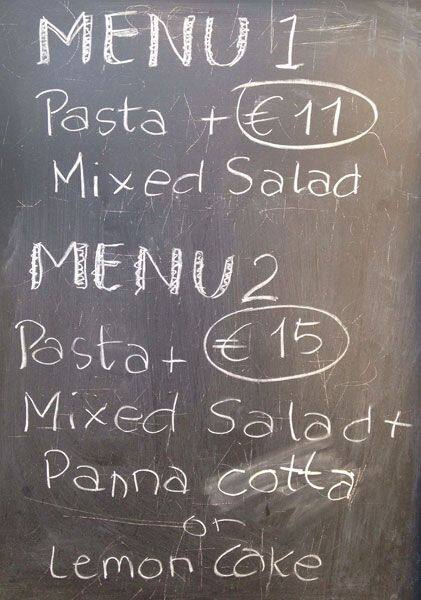 MENU 1
Pasta + € 11
Mixed Salad
MENU 2
Pasta + € 15
Mixed Salad +
Panna cotta
or
Lemon Cake